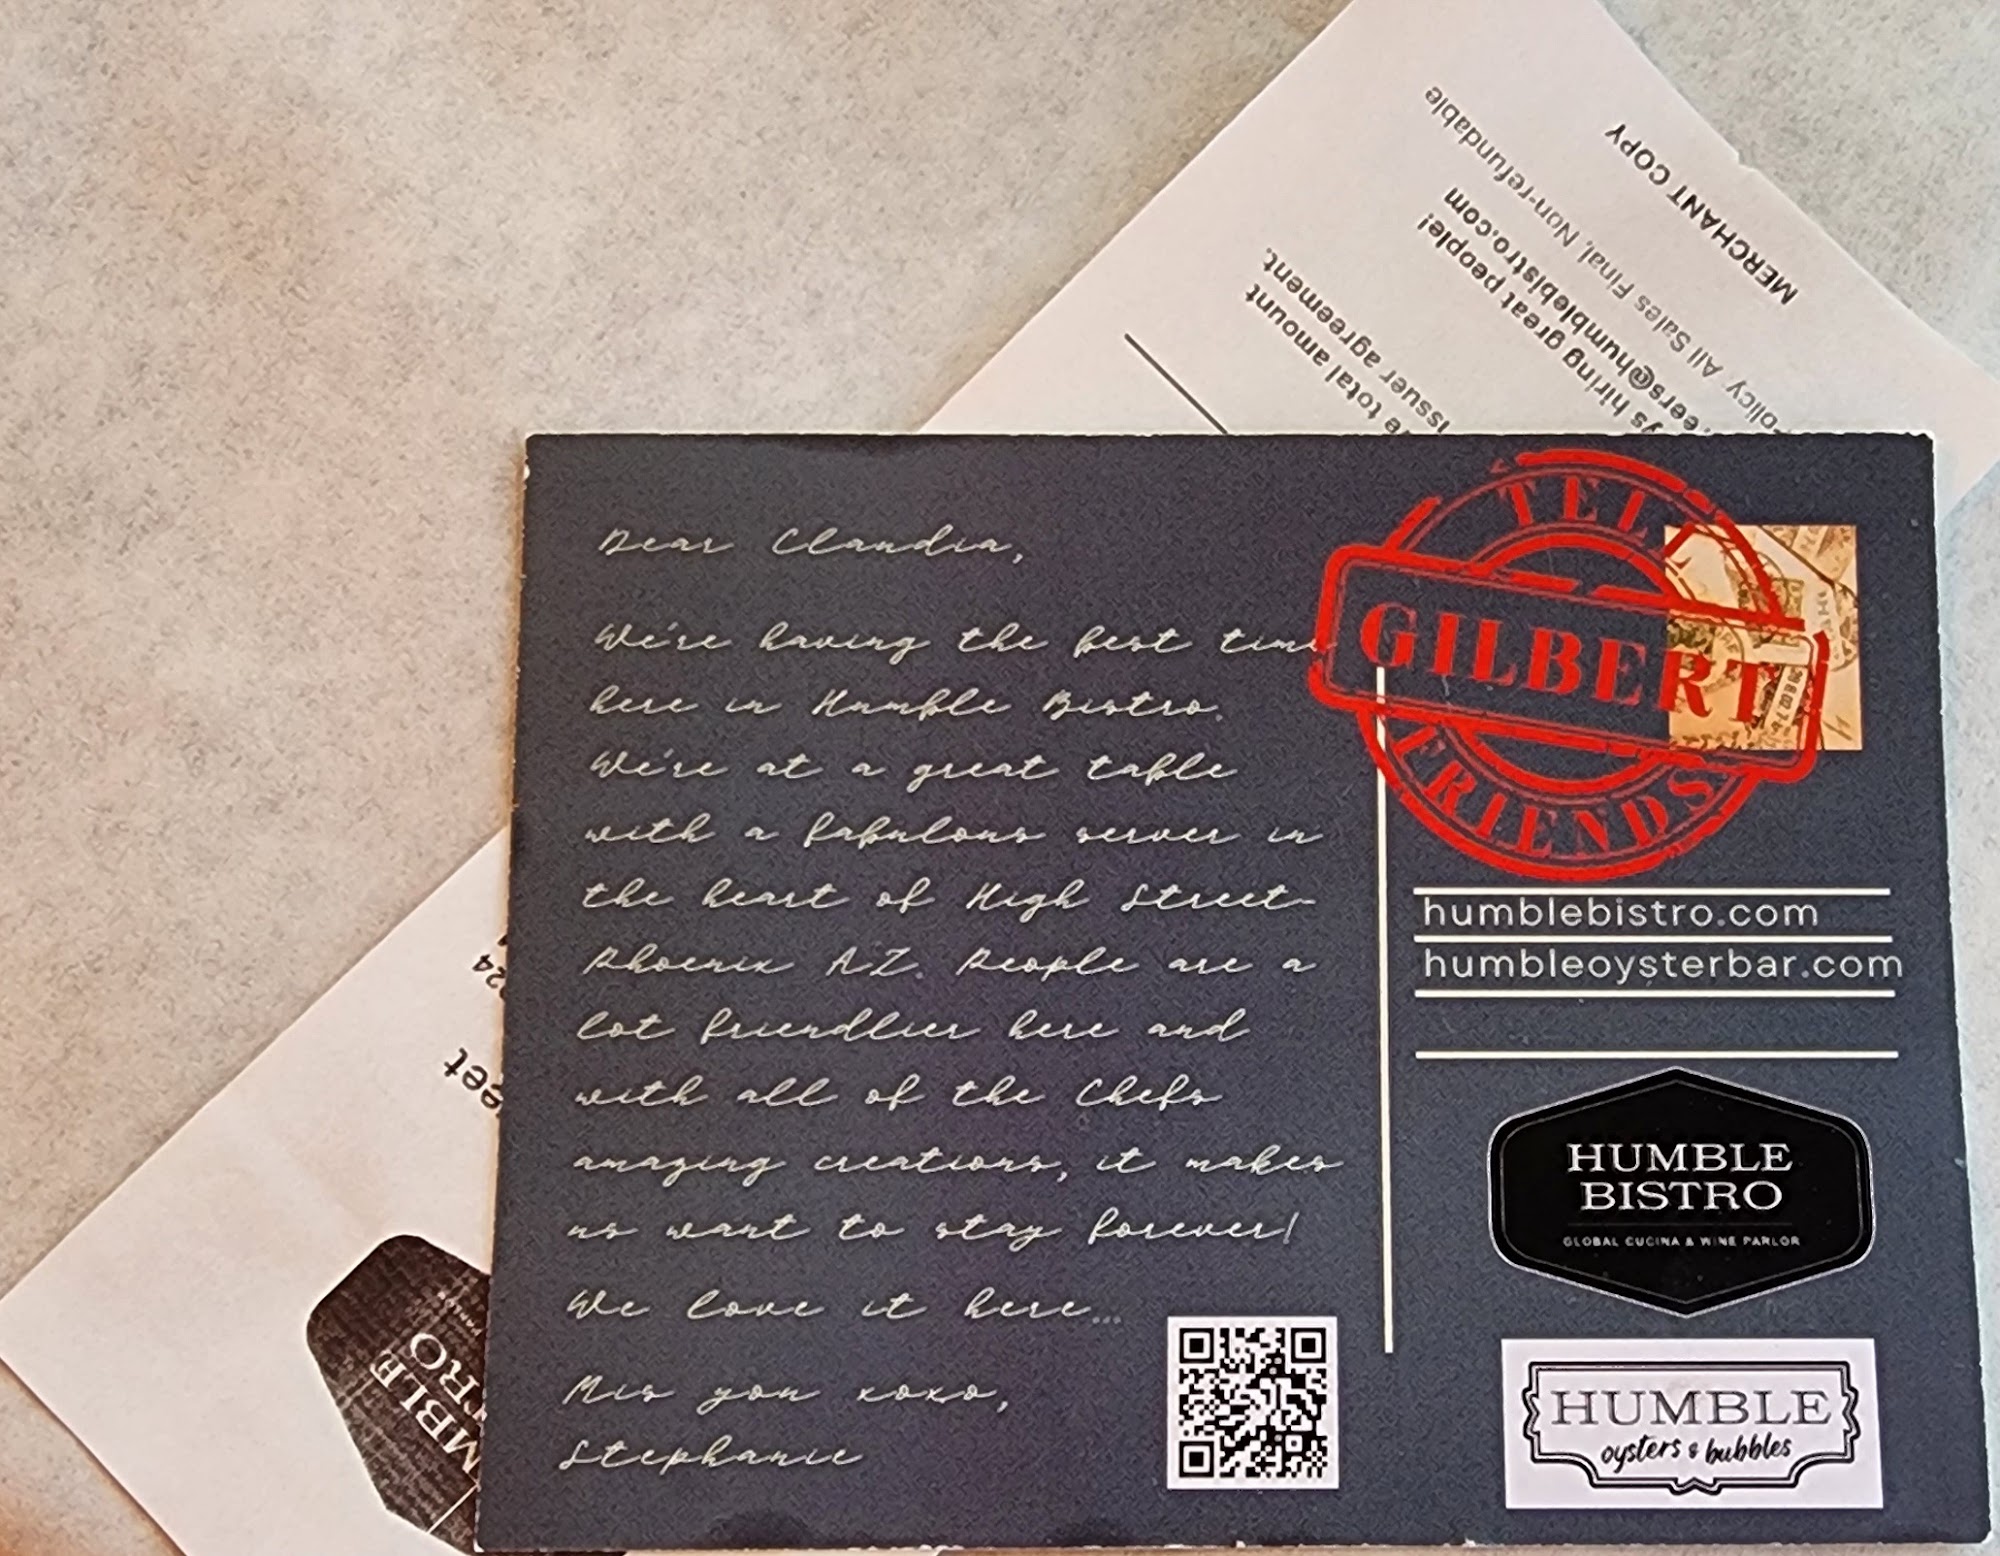 MERCHANT COPY
olicy. All Sales Final, Non-refundable
eers@humblebistro.com
ys hiring great people!
issuer agreement.
total amount
Dear Claudia,
We're having the best time
here in Humble Bistro.
We're at a great table
with a fabulous server in
the heart of High Street-
Phoenix AZ. People are a
lot friendlier here and
with all of the Chefs
amazing creations, it makes
us want to stay forever!
We love it here...
Mis you xoxo,
Stephanie
TEL
GILBERT
FRIENDS
humblebistro.com
humbleoysterbar.com
HUMBLE
BISTRO
GLOBAL CUCINA & WINE PARLOR
HUMBLE
oysters & bubbles
24
eet
MBLE
TRO